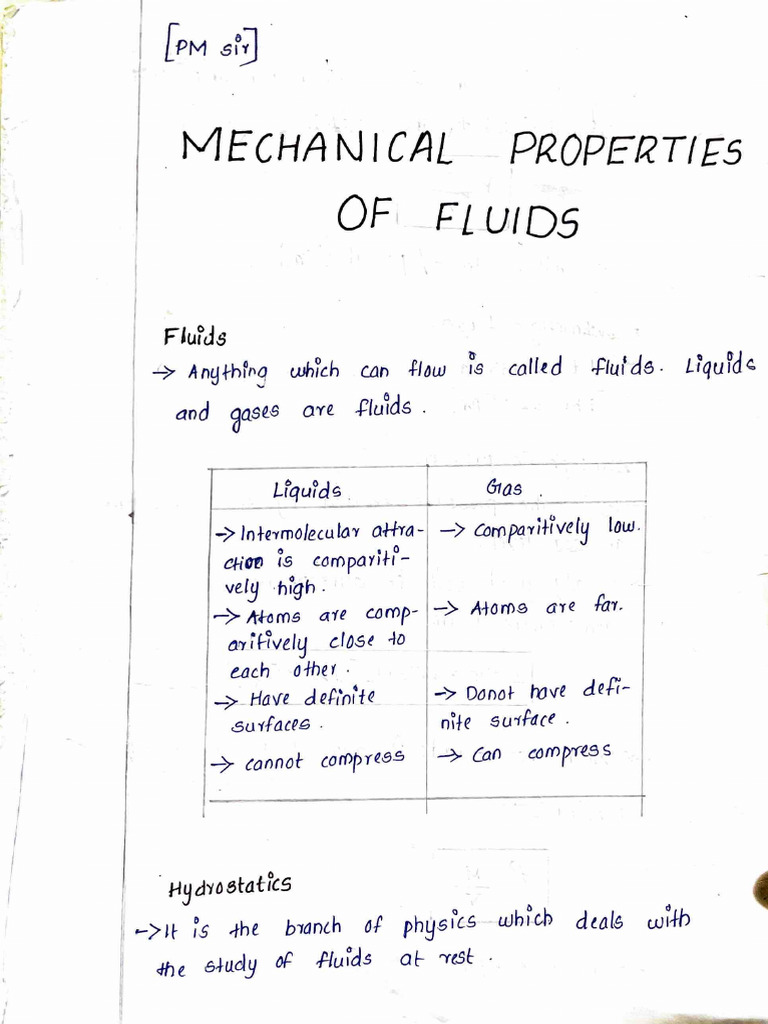 [PM sir]
MECHANICAL PROPERTIES
OF FLUIDS
Fluids
→ Anything which can flow is called fluids. Liquids
and gases are fluids.
Liquids
Gas.
→ Intermolecular attra-
ction is compariti-
vely high.
→ Comparitively low.
→ Atoms are comp-
aritively close to
each other.
→ Atoms are far.
→ Have definite
surfaces.
→ Donot have defi-
nite surface.
→ cannot compress
→ Can compress
Hydrostatics
→ It is the branch of physics which deals with
the study of fluids at rest.